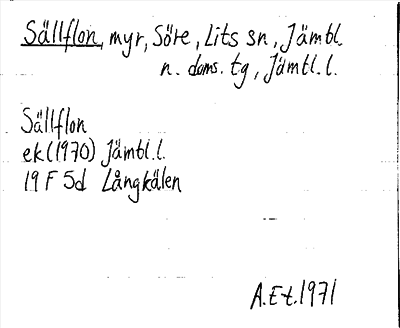 Sällflon, myr, Söre, Lits sn, Jämtl.
n. doms. tg, Jämtl. l.
Sällflon
ek (1970) Jämtl. l.
19 F 5d Långkälen
A. Et. 1971